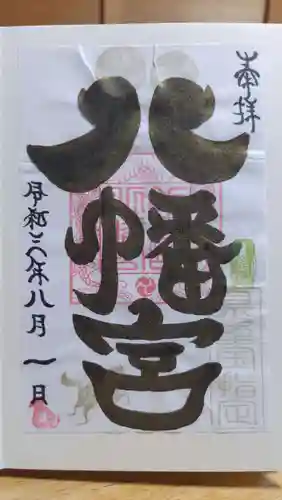 奉拝
八幡宮
令和六年八月一日